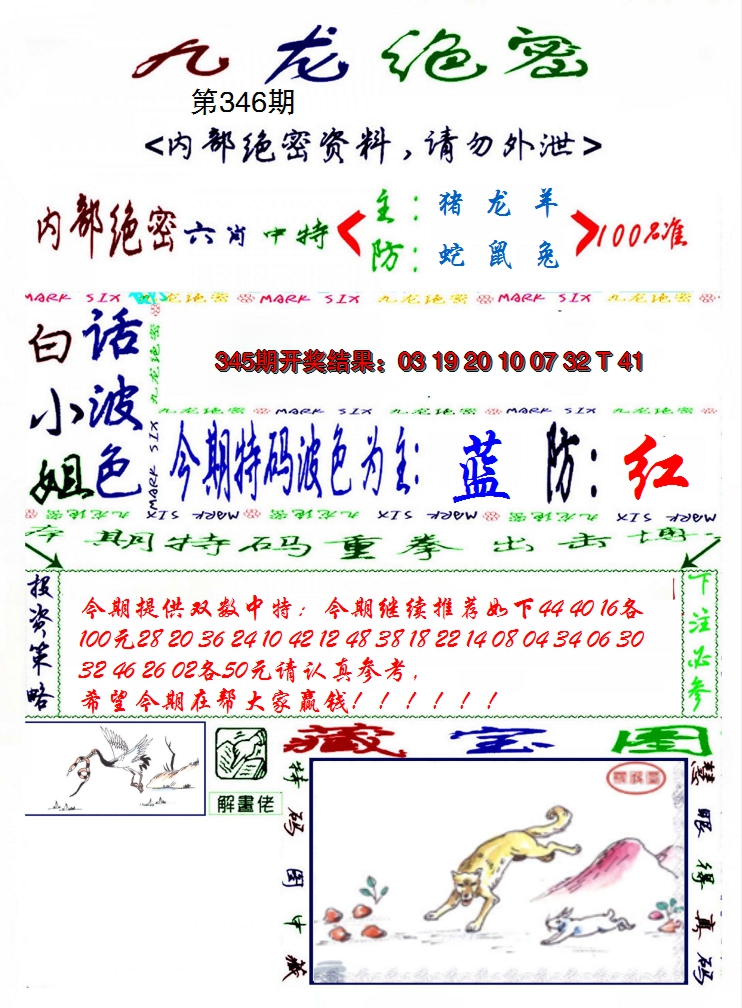 九龙绝密
第346期
<内部绝密资料,请勿外泄>
内部绝密六肖中特
主：猪 龙 羊
防：蛇 鼠 兔
100%准
MARK SIX 九龙绝密 MARK SIX 九龙绝密 MARK SIX 九龙绝密
白小姐
话波色
九龙绝密
MARK SIX
345期开奖结果：03 19 20 10 07 32 T 41
九龙绝密 MARK SIX 九龙绝密 MARK SIX 九龙绝密
今期特码波色为主：蓝 防：红
MARK SIX 九龙绝密 MARK SIX 九龙绝密 MARK SIX 九龙绝密
本期特码重拳出击博
投资策略
今期提供双数中特；今期继续推荐如下44 40 16各
100元28 20 36 24 10 42 12 48 38 18 22 14 08 04 34 06 30
32 46 26 02各50元请认真参考，
希望今期在帮大家赢钱！！！！！！
下注必参
解畫佬
藏宝图
特码图中藏
慧眼得真码